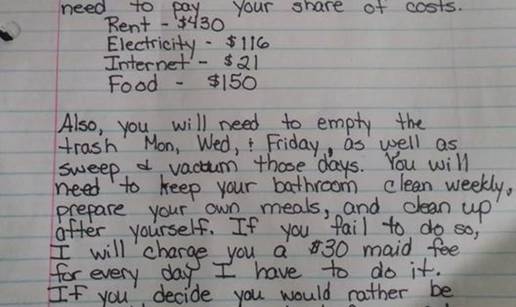 need to pay your share of costs.
Rent - $430
Electricity - $116
Internet - $21
Food - $150
Also, you will need to empty the
trash Mon, Wed, + Friday, as well as
sweep & vacuum those days. You will
need to keep your bathroom clean weekly,
prepare your own meals, and clean up
after yourself. If you fail to do so,
I will charge you a $30 maid fee
for every day I have to do it.
If you decide you would rather be